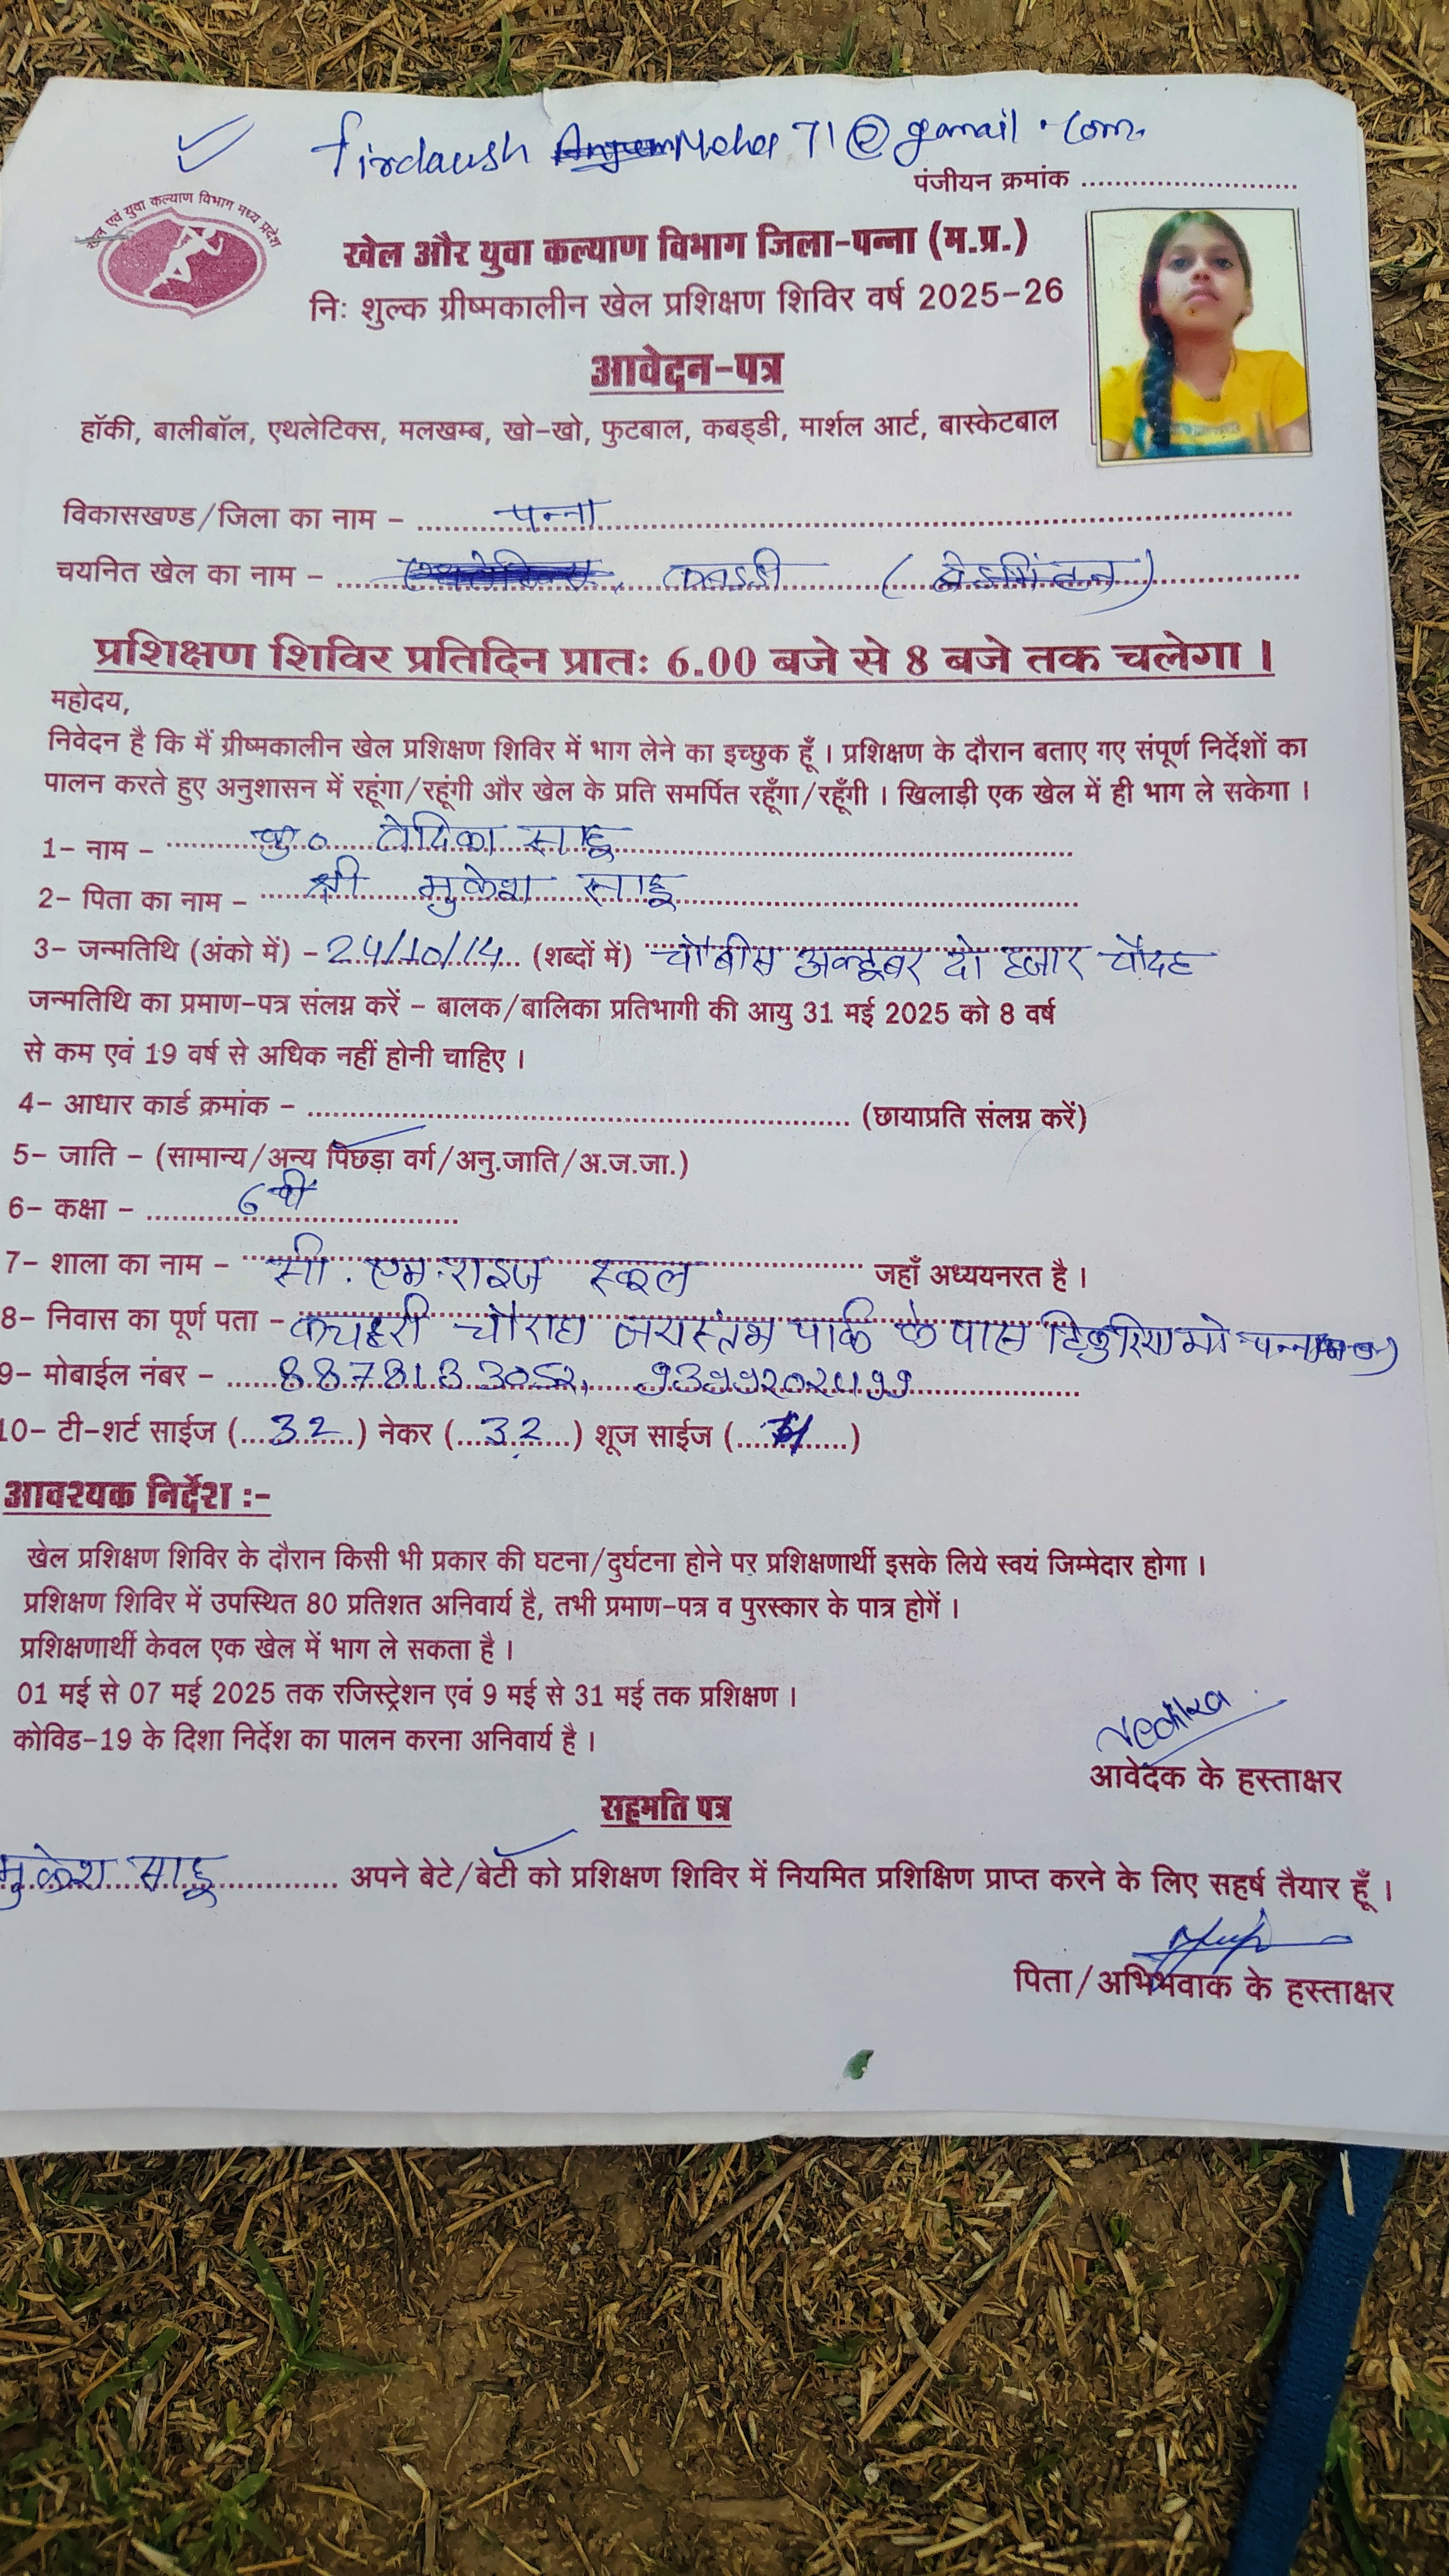 firdaush Neha 71@gamail.com
पंजीयन क्रमांक
खेल एवं युवा कल्याण विभाग मध्य प्रदेश
खेल और युवा कल्याण विभाग जिला-पन्ना (म.प्र.)
निः शुल्क ग्रीष्मकालीन खेल प्रशिक्षण शिविर वर्ष 2025-26
आवेदन-पत्र
हॉकी, बालीबॉल, एथलेटिक्स, मलखम्ब, खो-खो, फुटबाल, कबड्डी, मार्शल आर्ट, बास्केटबाल
विकासखण्ड/जिला का नाम - पन्ना
चयनित खेल का नाम - कबड्डी (बेडमिंटन)
प्रशिक्षण शिविर प्रतिदिन प्रातः 6.00 बजे से 8 बजे तक चलेगा।
महोदय,
निवेदन है कि मैं ग्रीष्मकालीन खेल प्रशिक्षण शिविर में भाग लेने का इच्छुक हूँ। प्रशिक्षण के दौरान बताए गए संपूर्ण निर्देशों का
पालन करते हुए अनुशासन में रहूंगा/रहूंगी और खेल के प्रति समर्पित रहूँगा/रहूँगी। खिलाड़ी एक खेल में ही भाग ले सकेगा।
1- नाम - कु० वेदिका साहू
2- पिता का नाम - श्री मुकेश साहू
3- जन्मतिथि (अंको में) - 24/10/14 (शब्दों में) चौबीस अक्टूबर दो हजार चौदह
जन्मतिथि का प्रमाण-पत्र संलग्न करें - बालक/बालिका प्रतिभागी की आयु 31 मई 2025 को 8 वर्ष
से कम एवं 19 वर्ष से अधिक नहीं होनी चाहिए।
4- आधार कार्ड क्रमांक - (छायाप्रति संलग्न करें)
5- जाति - (सामान्य/अन्य पिछड़ा वर्ग/अनु.जाति/अ.ज.जा.)
6- कक्षा - 6वी
7- शाला का नाम - सी. एम. राइज स्कूल जहाँ अध्ययनरत है।
8- निवास का पूर्ण पता - कचहरी चौराहा जयस्तंभ पार्क के पास टिकुरिया मो पन्ना
9- मोबाईल नंबर -
10- टी-शर्ट साईज (32) नेकर (32) शूज साईज ( )
आवश्यक निर्देश :-
खेल प्रशिक्षण शिविर के दौरान किसी भी प्रकार की घटना/दुर्घटना होने पर प्रशिक्षणार्थी इसके लिये स्वयं जिम्मेदार होगा।
प्रशिक्षण शिविर में उपस्थित 80 प्रतिशत अनिवार्य है, तभी प्रमाण-पत्र व पुरस्कार के पात्र होगें।
प्रशिक्षणार्थी केवल एक खेल में भाग ले सकता है।
01 मई से 07 मई 2025 तक रजिस्ट्रेशन एवं 9 मई से 31 मई तक प्रशिक्षण।
कोविड-19 के दिशा निर्देश का पालन करना अनिवार्य है।
Vedika
आवेदक के हस्ताक्षर
सहमति पत्र
मुकेश साहू अपने बेटे/बेटी को प्रशिक्षण शिविर में नियमित प्रशिक्षिण प्राप्त करने के लिए सहर्ष तैयार हूँ।
पिता/अभिभवाक के हस्ताक्षर